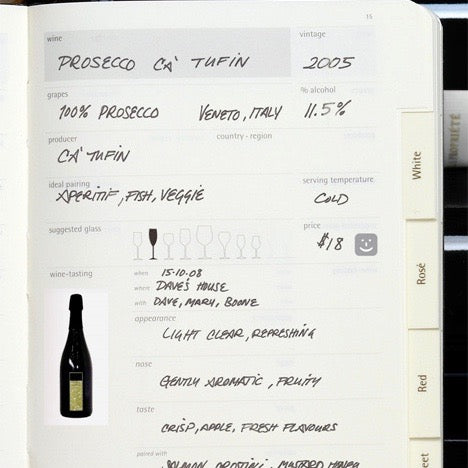 15
wine vintage
PROSECCO CA' TUFIN 2005
grapes % alcohol
100% PROSECCO VENETO, ITALY 11.5%
producer country · region
CA' TUFIN
ideal pairing serving temperature
APERITIF, FISH, VEGGIE COLD
suggested glass price
$18
wine-tasting when 15·10·08
where DAVE'S HOUSE
with DAVE, MARY, BOONE
appearance
LIGHT CLEAR, REFRESHING
nose
GENTLY AROMATIC, FRUITY
taste
CRISP, APPLE, FRESH FLAVOURS
paired with
SALMON CROSTINI, MUSTARD
White
Rosé
Red